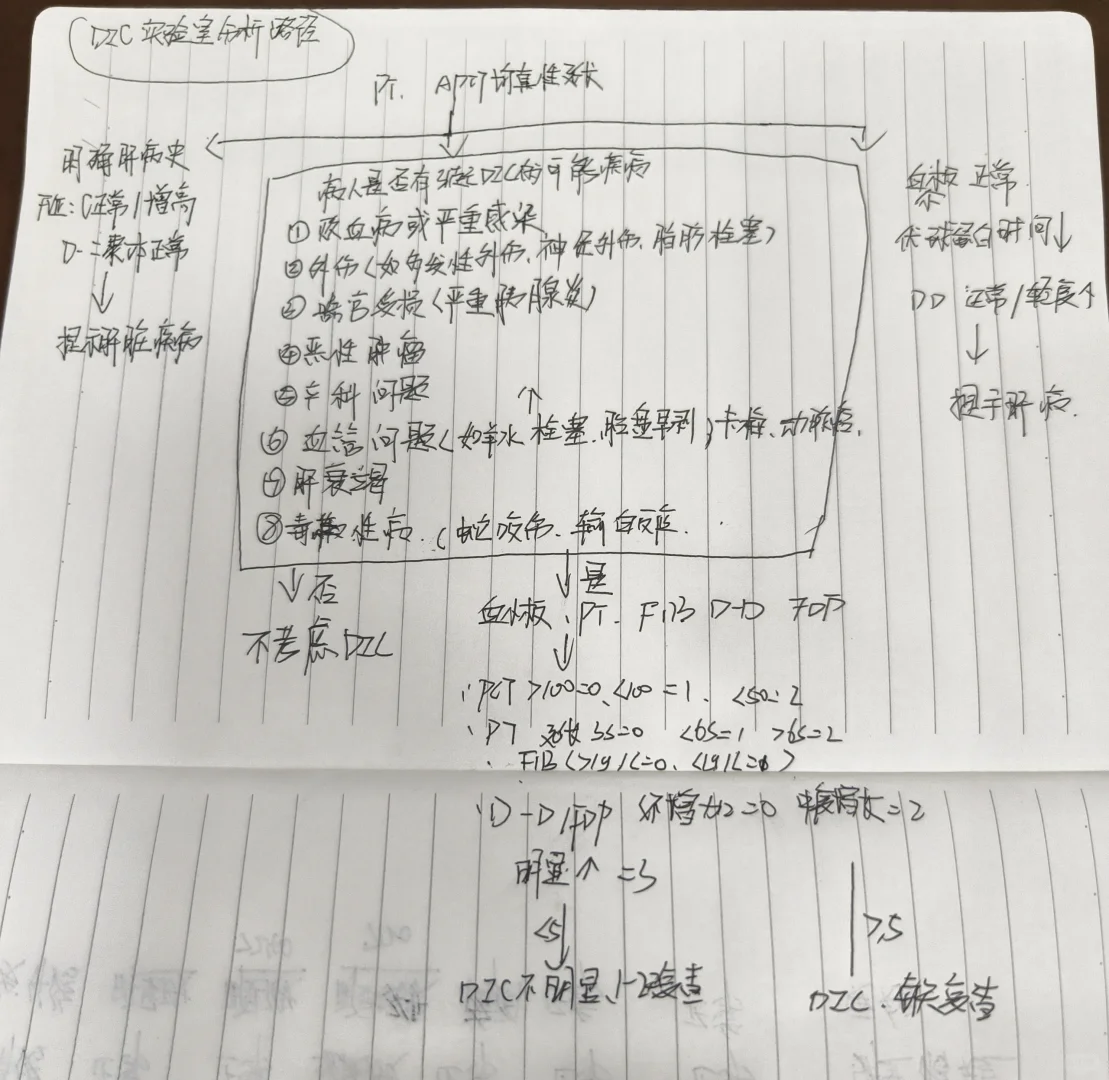 DIC实验室分析路径
PT. APTT 延长
明确肝病史
FⅧ:C正常/增高
D-二聚体正常
↓
提示肝脏疾病
病人是否有引起DIC的可能疾病
①败血病或严重感染
②外伤(如多发性外伤、神经外伤、脂肪栓塞)
③器官受损(严重胰腺炎)
④恶性肿瘤
⑤产科问题
↑
⑥血管问题(如羊水栓塞、胎盘早剥)卡梅、动脉瘤.
⑦肝衰竭
⑧毒性病.(蛇咬伤.输血反应.
血板正常
时间↓
DD 正常/轻度↑
↓
提示肝病.
↓否
不考虑DIC
↓是
血小板、PT. FIB D-D FDP
↓
·PCT >100=0、<100=1. <50=2
·PT 延长 3s=0 <6s=1 >6s=2
· FIB(>1g/L=0、<1g/L= )
·D-D/FDP 不增加=0 中度增加=2
明显↑ =3
<5↓
DIC不明显、1-2复查
>,5
DIC、每天复查